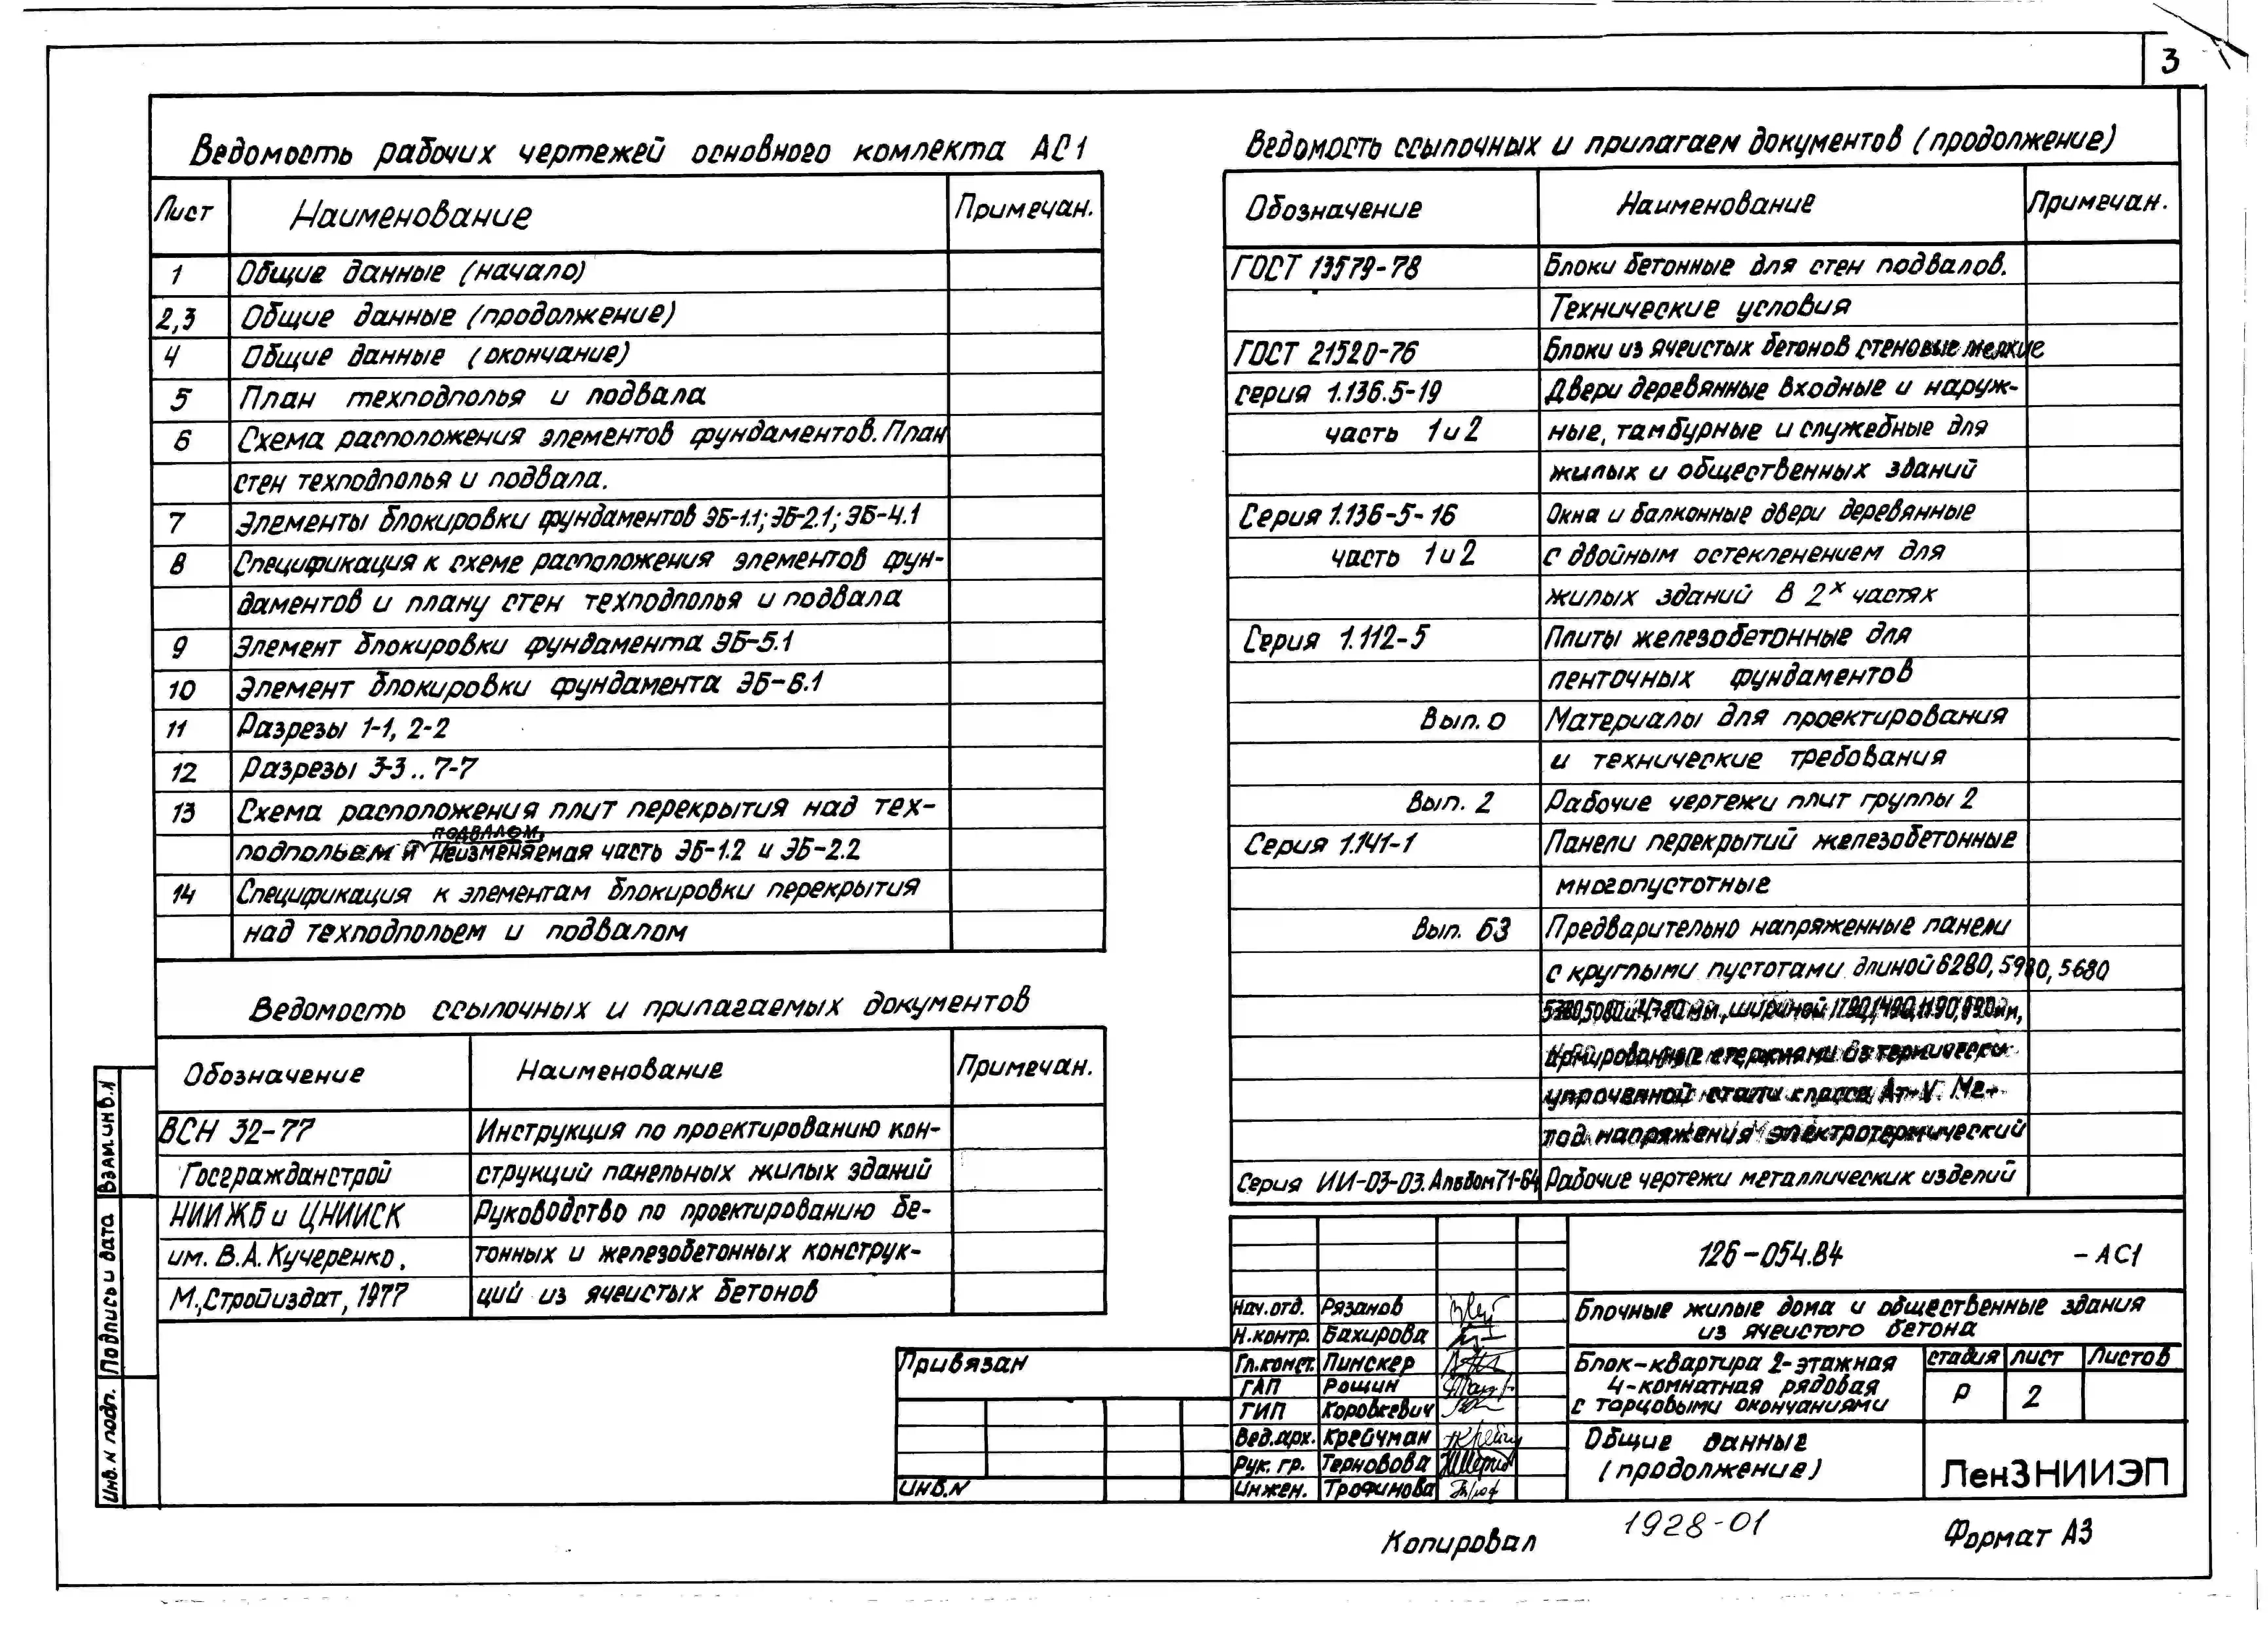 3
Ведомость рабочих чертежей основного комплекта АС1
Лист Наименование Примечан.
1 Общие данные (начало)
2,3 Общие данные (продолжение)
4 Общие данные (окончание)
5 План техподполья и подвала
6 Схема расположения элементов фундаментов. План
стен техподполья и подвала.
7 Элементы блокировки фундаментов ЭБ-1.1; ЭБ-2.1; ЭБ-4.1
8 Спецификация к схеме расположения элементов фун-
даментов и плану стен техподполья и подвала
9 Элемент блокировки фундамента ЭБ-5.1
10 Элемент блокировки фундамента ЭБ-6.1
11 Разрезы 1-1, 2-2
12 Разрезы 3-3.. 7-7
13 Схема расположения плит перекрытия над тех-
подпольем и подвалом, Неизменяемая часть ЭБ-1.2 и ЭБ-2.2
14 Спецификация к элементам блокировки перекрытия
над техподпольем и подвалом
Ведомость ссылочных и прилагаемых документов
Обозначение Наименование Примечан.
ВСН 32-77 Инструкция по проектированию кон-
Госгражданстрой струкций панельных жилых зданий
НИИЖБ и ЦНИИСК Руководство по проектированию бе-
им. В.А. Кучеренко, тонных и железобетонных конструк-
М., Стройиздат, 1977 ций из ячеистых бетонов
Ведомость ссылочных и прилагаем документов (продолжение)
Обозначение Наименование Примечан.
ГОСТ 13579-78 Блоки бетонные для стен подвалов.
Технические условия
ГОСТ 21520-76 Блоки из ячеистых бетонов стеновые мелкие
серия 1.136.5-19 Двери деревянные входные и наруж-
часть 1 и 2 ные, тамбурные и служебные для
жилых и общественных зданий
Серия 1.136-5-16 Окна и балконные двери деревянные
часть 1 и 2 с двойным остекленением для
жилых зданий в 2х частях
Серия 1.112-5 Плиты железобетонные для
ленточных фундаментов
Вып. 0 Материалы для проектирования
и технические требования
Вып. 2 Рабочие чертежи плит группы 2
Серия 1.141-1 Панели перекрытий железобетонные
многопустотные
Вып. 63 Предварительно напряженные панели
с круглыми пустотами длиной 6280, 5980, 5680
5380, 5080 и 4780 мм, шириной 1790, 1490, 1190, 990 мм,
армированные стержнями из термически
упрочненной стали класса Ат-V. Ме-
тод напряжения электротермический
Серия ИИ-03-03. Альбом 71-64 Рабочие чертежи металлических изделий
126-054.84 -АС1
Блочные жилые дома и общественные здания
из ячеистого бетона
Нач.отд. Рязанов
Н.контр. Бахирова
Гл.конст. Пинскер
ГАП Рощин
ГИП Коровкевич
Вед.арх. Крейчман
Рук. гр. Терновова
Инжен. Трофимова
Блок-квартира 2-этажная
4-комнатная рядовая
с торцовыми окончаниями
стадия лист Листов
Р 2
Общие данные
(продолжение)
ЛенЗНИИЭП
Привязан
Инв.N
Взам.инв.N
Подпись и дата
Инв. N подл.
Копировал 1928-01 Формат А3